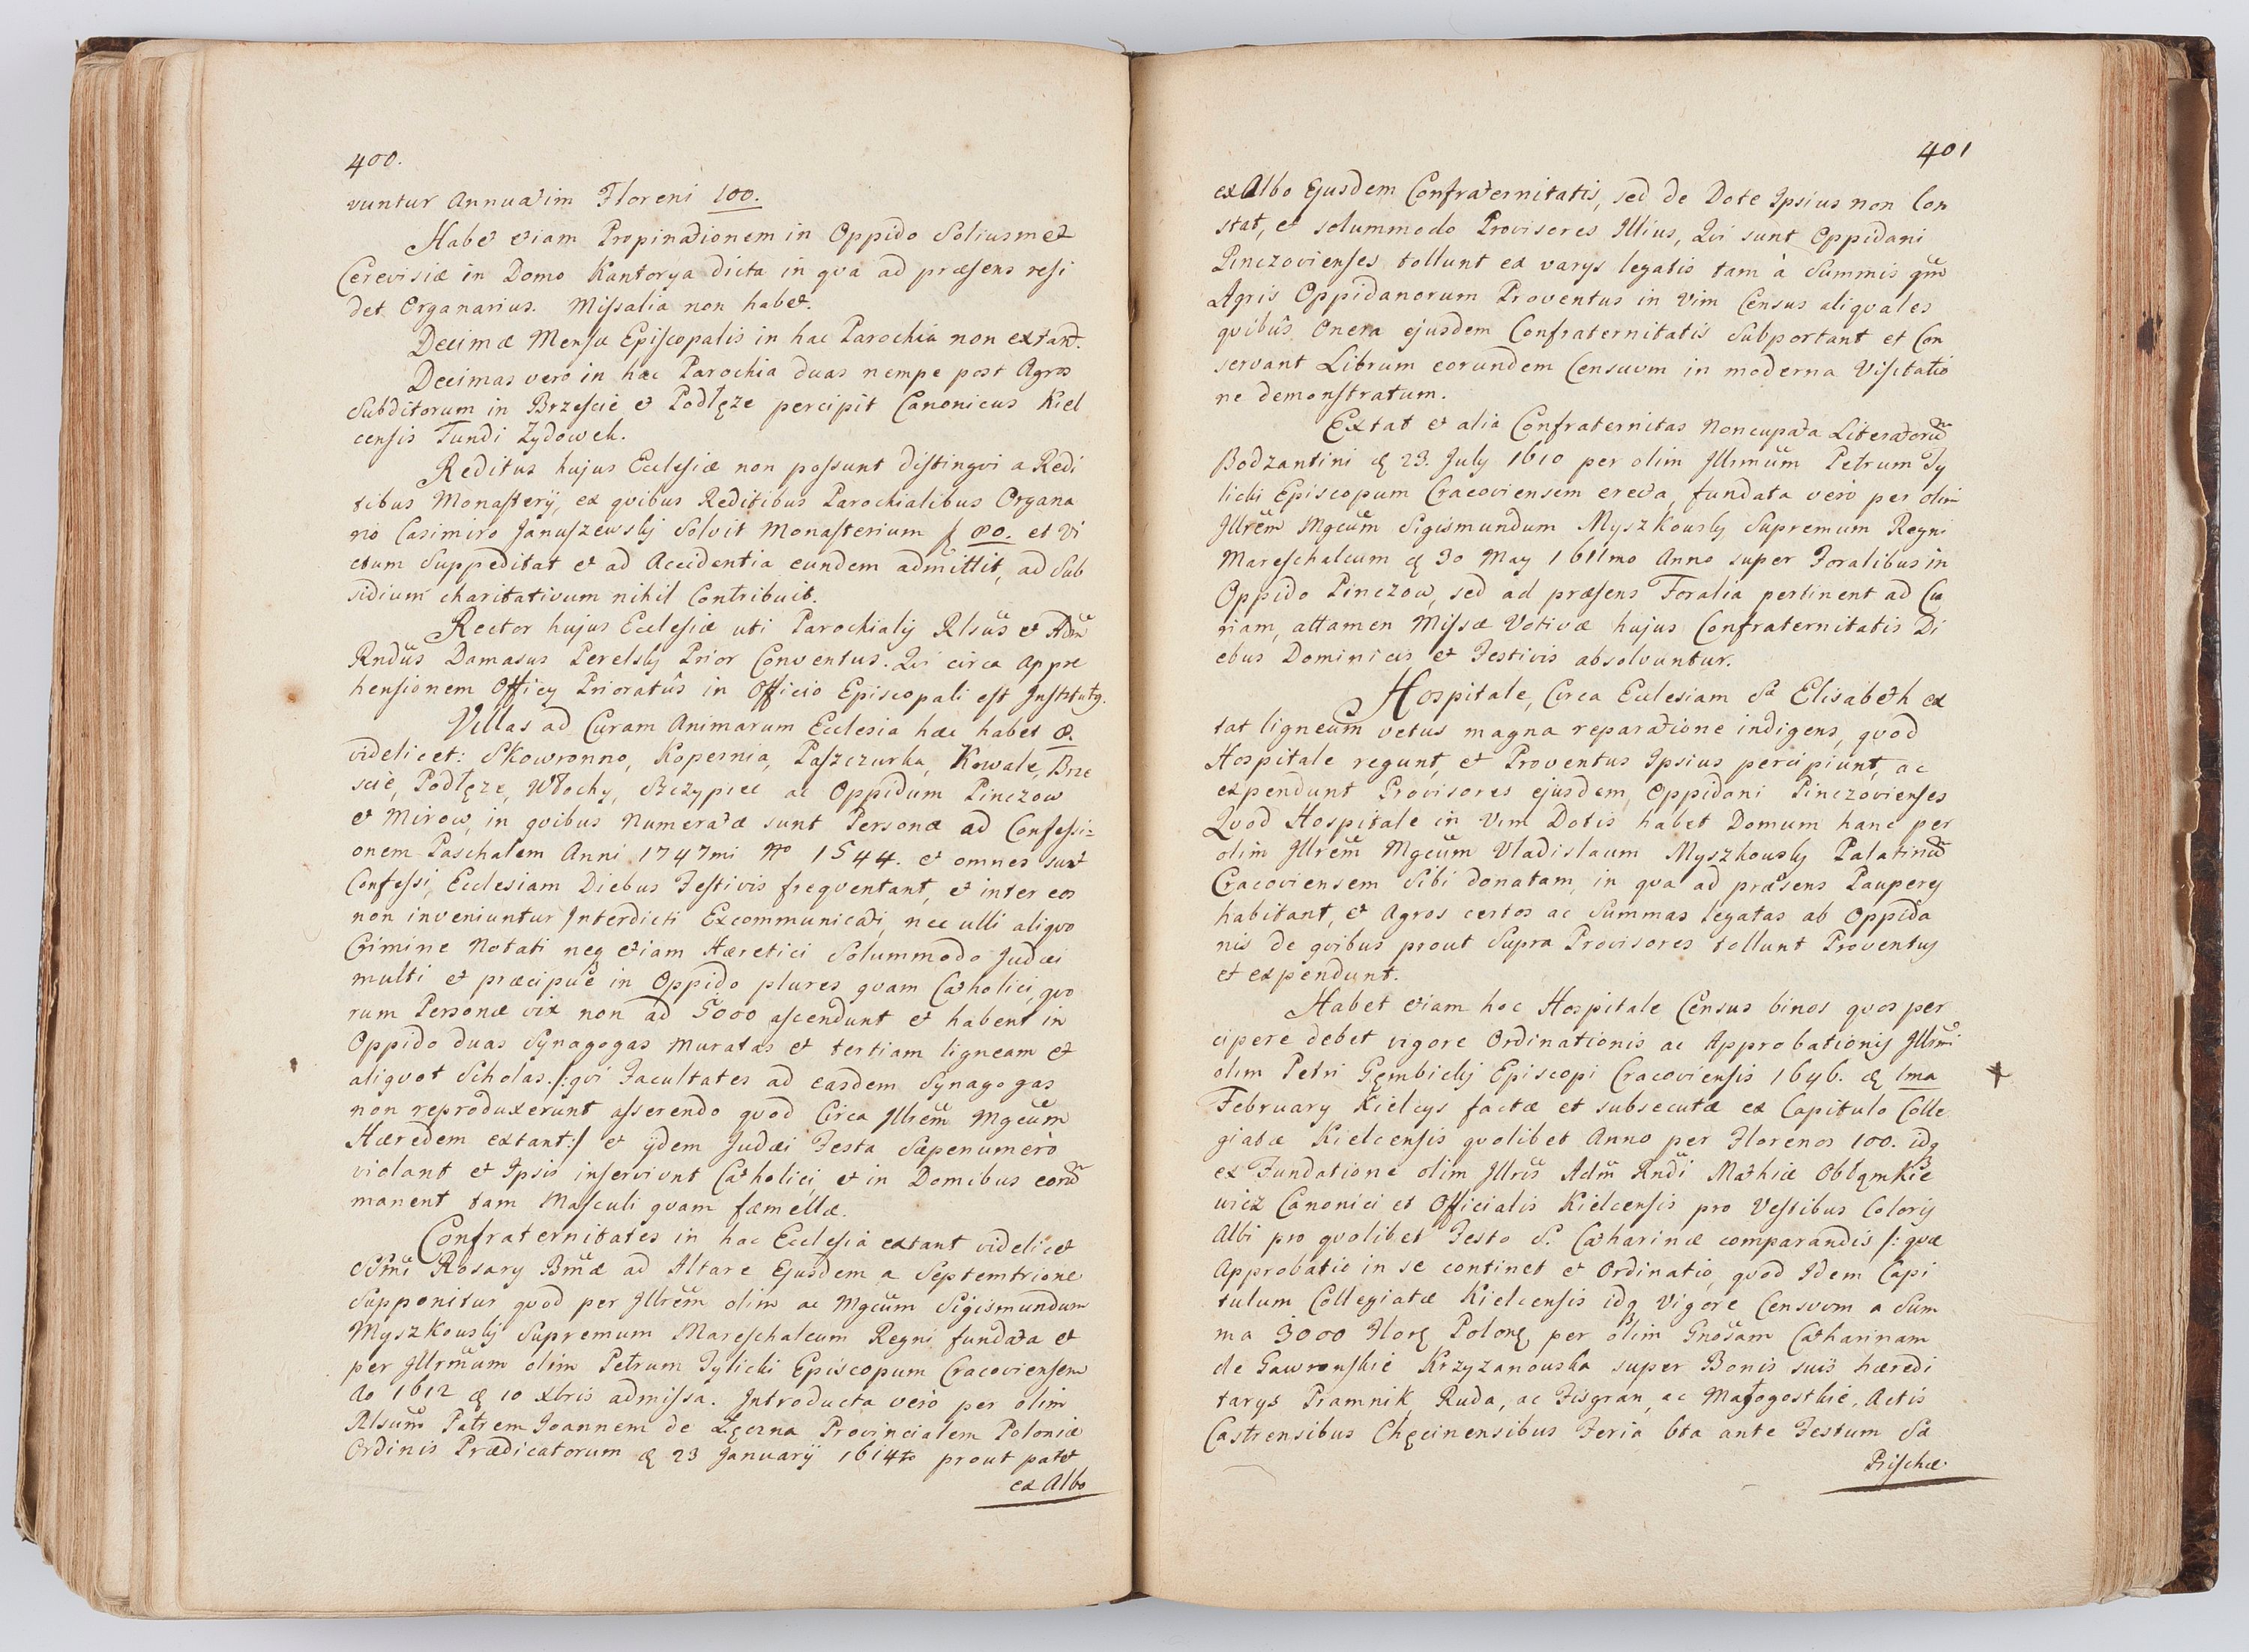 400.
vuntur Annuatim Floreni 100.
Habet etiam Propinationem in Oppido Soliusmet
Cerevisiæ in Domo Kantorya dicta in qva ad præsens resi
det Organarius. Missalia non habet.
Decimæ Mensæ Episcopalis in hac Parochia non extant.
Decimas vero in hac Parochia duas nempe post Agros
Subditorum in Brzescie et Podłęze percipit Canonicus Kiel
censis Fundi Zydowek.
Reditus hujus Ecclesiæ non possunt distingvi a Redi
tibus Monasterij, ex qvibus Reditibus Parochialibus Organa
rio Casimiro Januszewskij Solvit Monasterium f 80. et Vi
ctum Suppeditat et ad Accidentia eundem admittit, ad Sub
sidium charitativum nihil Contribuit.
Rector hujus Ecclesiæ uti Parochialis Rlsus et Adm
Rndus Damasus Perelskj Prior Conventus. Qvi circa Appre
hensionem Officy Prioratûs in Officio Episcopali est Institutg.
Villas ad Curam Animarum Ecclesia hæc habet 8.
videlicet: Skowronno, Kopernia, Paszczurka, Kowale, Brze
scie, Podłęze, Włochy, Sczypiec ac Oppidum Pinczow
et Mirow, in qvibus Numeratæ sunt Personæ ad Confessi=
onem Paschalem Anni 1747mi No 1544. et omnes sunt
Confessi, Ecclesiam Diebus Festivis freqventant, et inter eos
non inveniuntur Interdicti Excommunicati, nec ulli aliqvo
Crimine Notati neq etiam Hæretici Solummodo Judæi
multi et præcipuè in Oppido plures qvam Catholici, qvo
rum Personæ vix non ad 5000 ascendunt et habent in
Oppido duas Synagogas muratas et tertiam ligneam et
aliqvot Scholas. /:qvi Facultates ad easdem Synagogas
non reproduxerunt asserendo qvod Circa Illrem Mgcum
Hæredem extant:/ et ijdem Judæi Festa Sæpenumerò
violant et Ipsis inserviunt Catholici, et in Domibus eorum
manent tam Masculi qvam fæmellæ.
Confraternitates in hac Ecclesia extant videlicet
SSmi Rosary Bmæ ad Altare Ejusdem a Septemtrione
Supponitur qvod per Illrem olim ac Mgcum Sigismundum
Myszkouskj Supremum Mareschalcum Regni fundata et
per Illrmum olim Petrum Tylicki Episcopum Cracoviensem
Ao 1612 d 10 Xbris admissa. Introducta verò per olim
Rlsum Patrem Joannem de Łęczna Provincialem Poloniæ
Ordinis Prædicatorum d 23 Januarij 1614to prout patet
ex Albo
401
ex Albo Ejusdem Confraternitatis, sed de Dote Ipsius non Con
stat, et solummodo Provisores Illius, Qvi sunt Oppidani
Pinczovienses tollunt ex varys legatis tam à Summis qm
Agris Oppidanorum Proventus in Vim Census aliqvales
qvibus Onera ejusdem Confraternitatis Subportant et Con
servant Librum eorundem Censuum in moderna Visitatio
ne demonstratum.
Extat et alia Confraternitas Noncupata Literatorum
Bodzantini d 23. July 1610 per olim Illrmum Petrum Ty
licki Episcopum Cracoviensem erecta, fundata verò per olim
Illrem Mgcum Sigismundum Myszkouskj Supremum Regni
Mareschalcum d 30 May 1611mo Anno super Foralibus in
Oppido Pinczow, sed ad præsens Foralia pertinent ad Cu
riam, attamen Missæ Votivæ hujus Confraternitatis Di
ebus Dominicis et Festivis absolvuntur.
Hospitale, Circa Ecclesiam Sæ Elisabeth ex
tat ligneum vetus magna reparatione indigens, qvod
Hospitale regunt, et Proventus Ipsius percipiunt, ac
expendunt Provisores ejusdem, Oppidani Pinczovienses
Qvod Hospitale in Vim Dotis habet Domum hanc per
olim Illrem Mgcum Vladislaum Myszkouskj Palatinum
Cracoviensem Sibi donatam, in qva ad præsens Pauperes
habitant, et Agros certos ac Summas legatas ab Oppida
nis de qvibus prout Supra Provisores tollunt Proventus
et expendunt.
Habet etiam hoc Hospitale Census binos qvos per
cipere debet vigore Ordinationis ac Approbationis Illrmi
olim Petri Gębickij Episcopi Cracoviensis 1646. d 1ma
February Kielcys factæ et subsecutæ ex Capitulo Colle
giatæ Kielcensis qvolibet Anno per Florenos 100. idq
ex Fundatione olim Illris Adm Rndi Mathiæ Obłąmkie
wicz Canonici et Officialis Kielcensis pro Vestibus Coloris
Albi pro qvolibet Festo S. Catharinæ comparandis /: qvæ
Approbatio in se continet et Ordinatio, qvod Idem Capi
tulum Collegiatæ Kielcensis idq Vigore Censuum a Sum
ma 3000 Flor Polon, per olim Gnosam Catharinam
de Gawronskie Krzyzanouska super Bonis suis hæredi
tarys Pramnik, Ruda, ac Fisgran, ac Małogostkie, Actis
Castrensibus Chęcinensibus Feria 6ta ante Festum Sæ
Prischæ